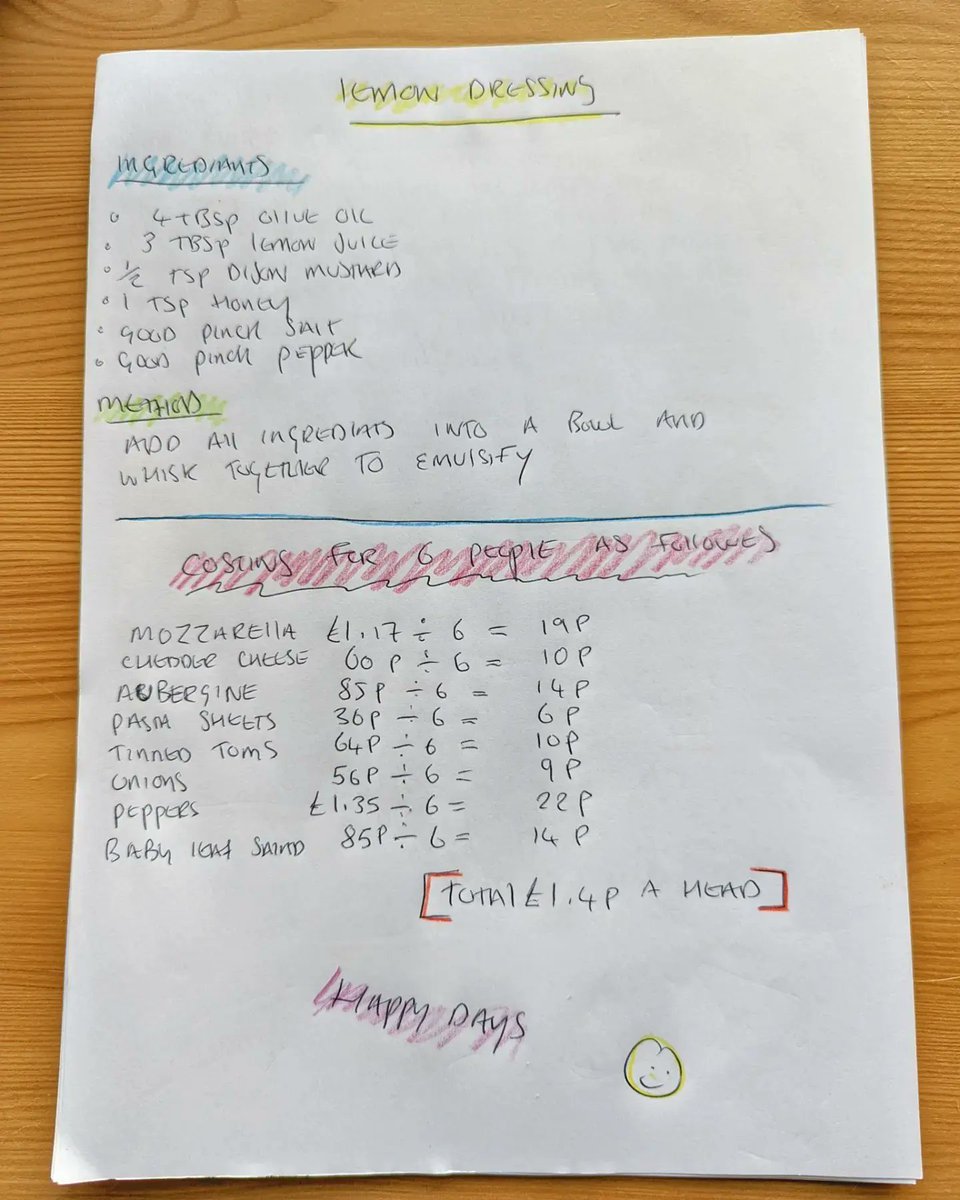 LEMON DRESSING
INGREDIANTS
• 4 TBSP OLIVE OIL
• 3 TBSP LEMON JUICE
• 1/2 TSP DIJON MUSTARD
• 1 TSP HONEY
• GOOD PINCH SALT
• GOOD PINCH PEPPER
METHOD
ADD ALL INGREDIATS INTO A BOWL AND
WHISK TOGETHER TO EMULSIFY
COSTINGS FOR 6 PEOPLE AS FOLLOWES
MOZZARELLA £1.17 ÷ 6 = 19P
CHEDDER CHEESE 60P ÷ 6 = 10P
AUBERGINE 85P ÷ 6 = 14P
PASTA SHEETS 36P ÷ 6 = 6P
TINNED TOMS 64P ÷ 6 = 10P
ONIONS 56P ÷ 6 = 9P
PEPPERS £1.35 ÷ 6 = 22P
BABY LEAF SALAD 85P ÷ 6 = 14P
[TOTAL £1.4P A HEAD]
HAPPY DAYS